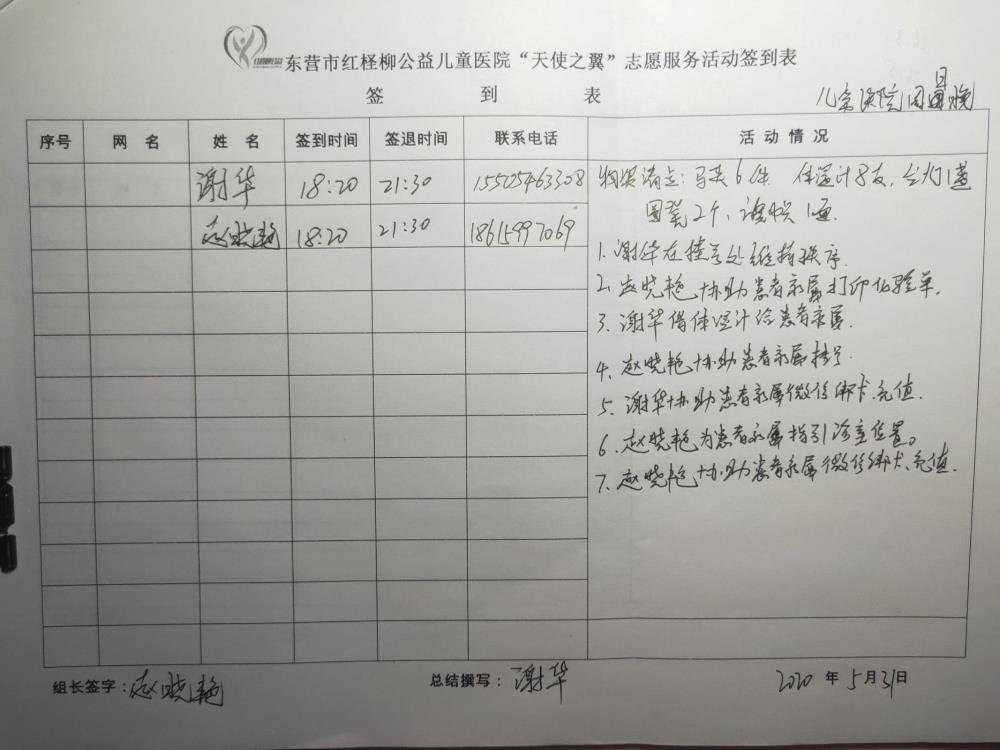 东营市红柽柳公益儿童医院“天使之翼”志愿服务活动签到表
签 到 表
儿童医院周日晚
序号 网 名 姓 名 签到时间 签退时间 联系电话 活 动 情 况
谢华 18:20 21:30 15525463308
赵晓艳 18:20 21:30 18615997069
物资清点:马夹6件. 体温计8支,台灯1盏
圆凳2个,
1.谢华在挂号处维持秩序.
2.赵晓艳协助患者家属打印化验单.
3.谢华借体温计给患者家属.
4.赵晓艳协助患者家属挂号.
5.谢华协助患者家属微信绑卡、充值.
6.赵晓艳为患者家属指引诊室位置。
7.赵晓艳协助患者家属微信绑卡、充值.
组长签字:赵晓艳 总结撰写:谢华 2020 年 5月31日